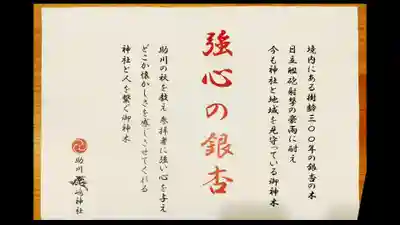 境内にある樹齢三〇〇年の銀杏の木
日立艦砲射撃の豪雨に耐え
今も神社と地域を見守っている御神木
強心の銀杏
助川の秋を教え 参拝者に強い心を与え
どこか懐かしさを感じさせてくれる
神社と人を繋ぐ御神木
助川鹿嶋神社